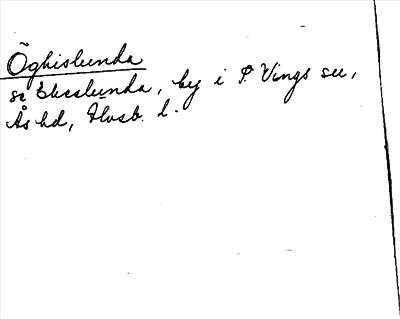 Õghislunda
se Ekeslunda, by i S. Vings sn,
Ås hd, Älvsb. l.